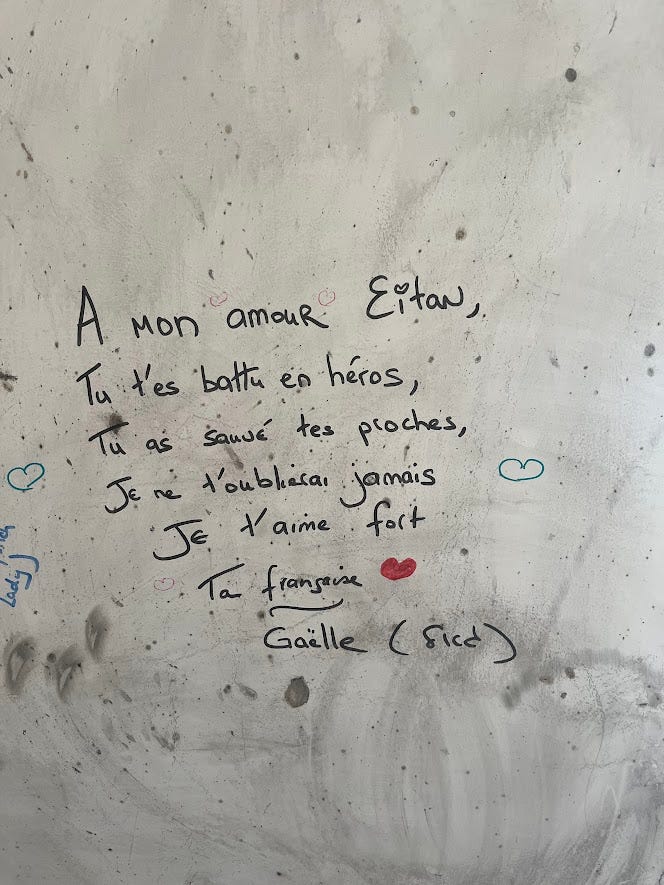 A mon amour Eitan,
Tu t'es battu en héros,
Tu as sauvé tes proches,
Je ne t'oublierai jamais
Je t'aime fort
Ta française
Gaëlle (גאל)
Lady